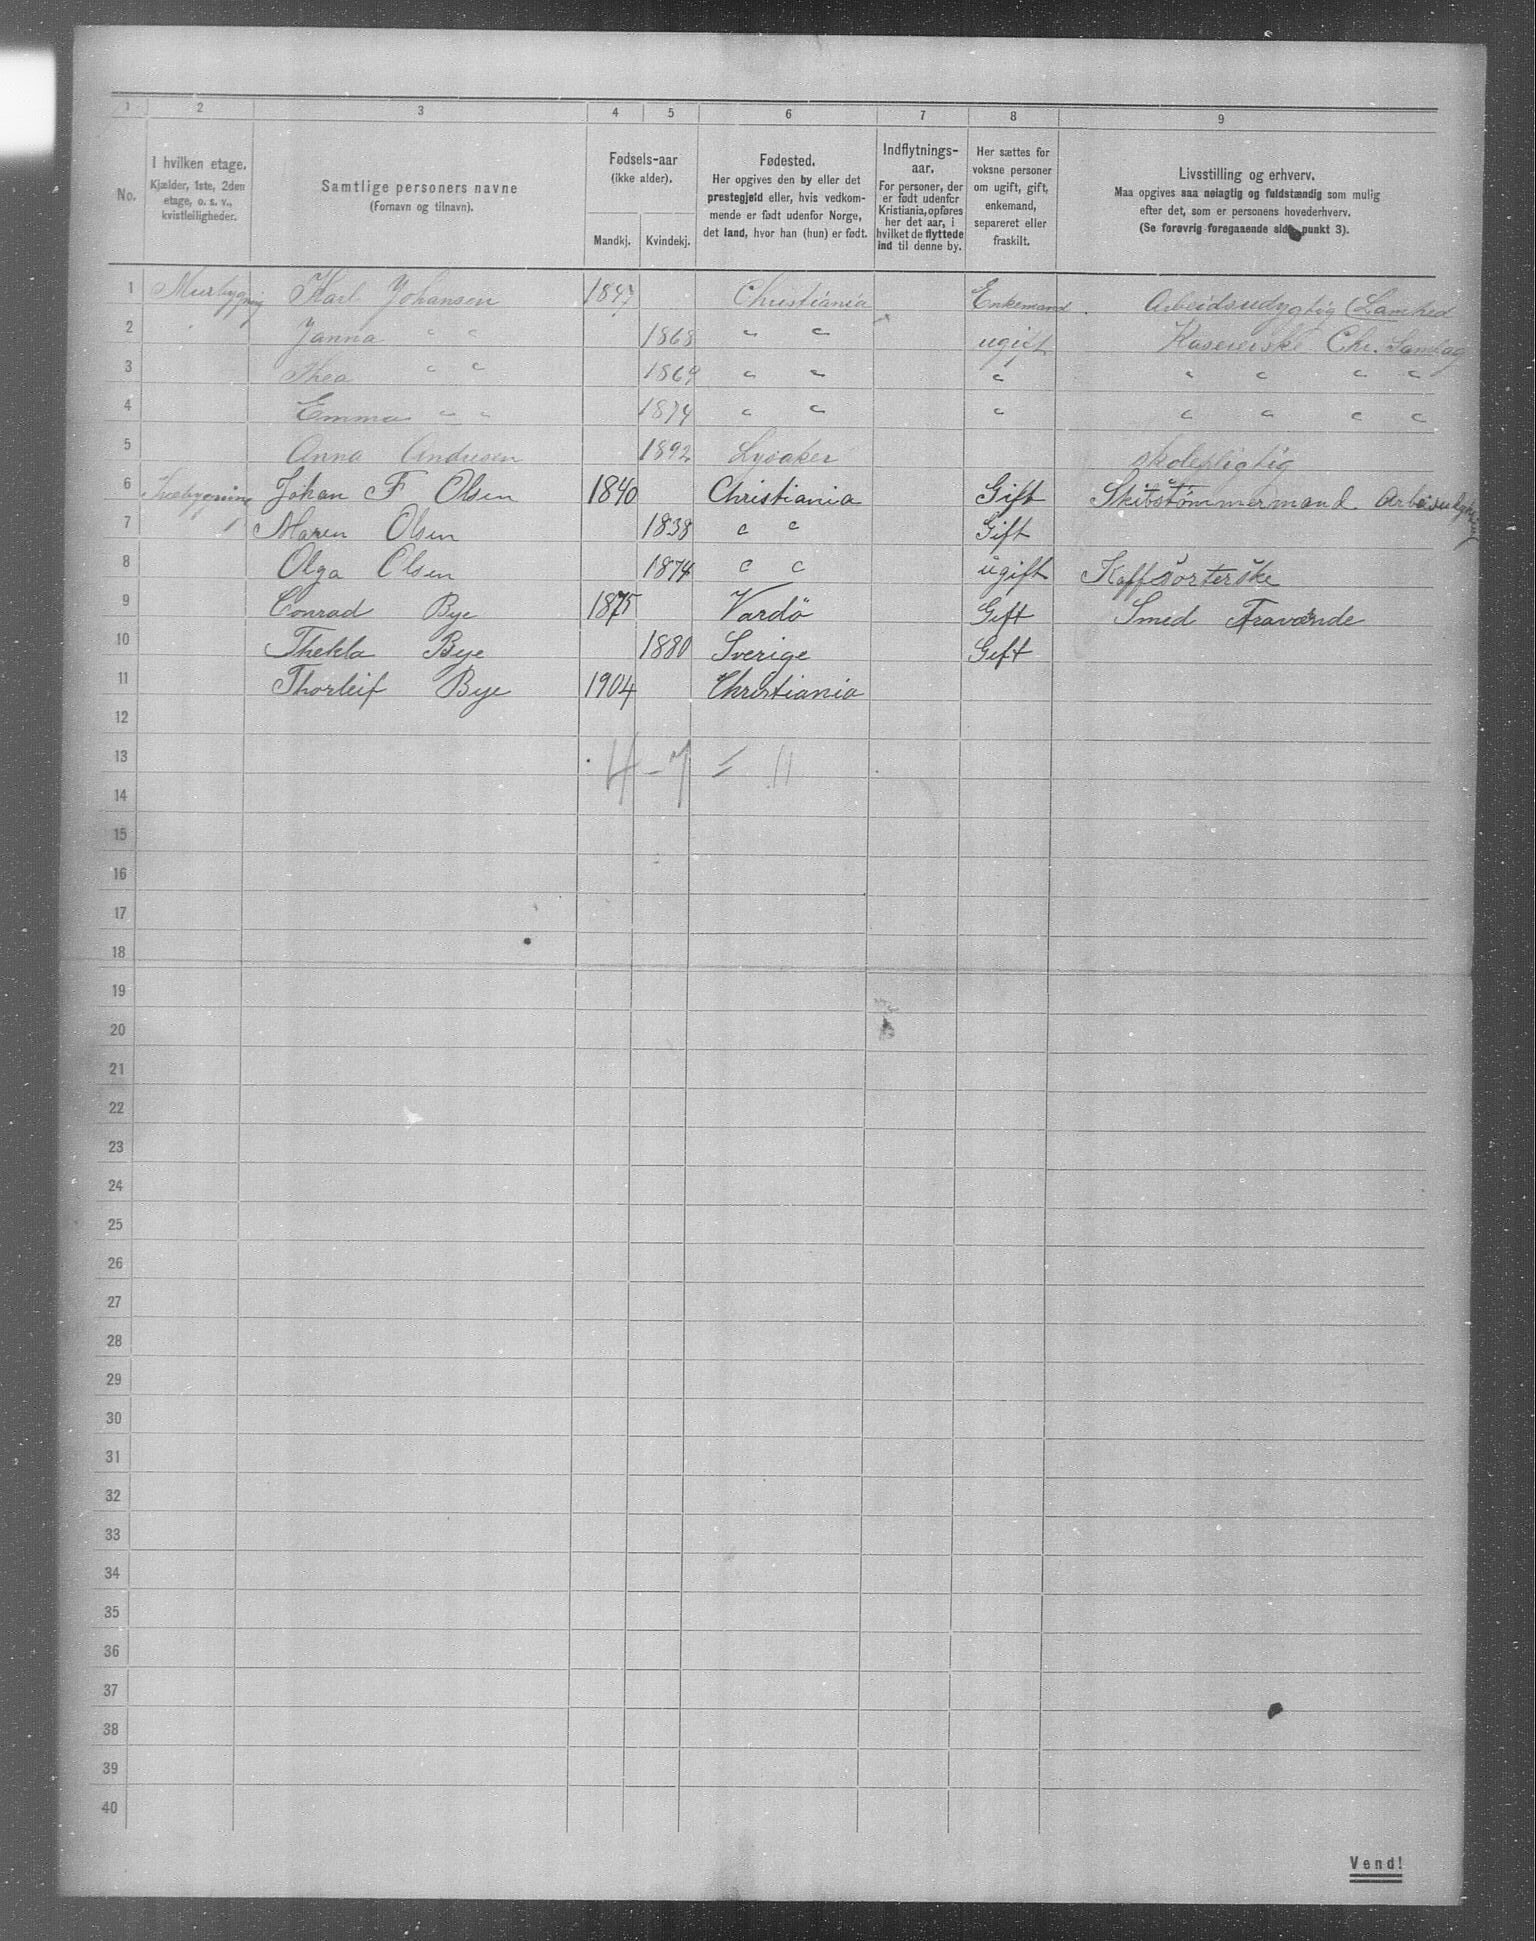 1 2 3 4 5 6 7 8 9
No.
I hvilken etage.
Kjælder, 1ste, 2den
etage, o. s. v.,
kvistleiligheder.
Samtlige personers navne
(Fornavn og tilnavn).
Fødsels-aar
(ikke alder).
Mandkj. Kvindekj.
Fødested.
Her opgives den by eller det
prestegjeld eller, hvis vedkom-
mende er født udenfor Norge,
det land, hvor han (hun) er født.
Indflytnings-
aar.
For personer, der
er født udenfor
Kristiania, opføres
her det aar, i
hvilket de flyttede
ind til denne by.
Her sættes for
voksne personer
om ugift, gift,
enkemand,
separeret eller
fraskilt.
Livsstilling og erhverv.
Maa opgives saa nøiagtig og fuldstændig som mulig
efter det, som er personens hovederhverv.
(Se forøvrig foregaaende side, punkt 3).
1 Murbygning Karl Johansen 1847 Christiania Enkemand Arbeidsudygtig
2 Janna " " 1868 " " ugift Chr.
3 Thea " " 1869 " " " " " " "
4 Emma " " 1874 " " " " " " "
5 Anna Andresen 1892 Lysaker skolepligtig
6 Træbygning Johan F Olsen 1840 Christiania Gift Skibstømmermand
7 Maren Olsen 1838 " " Gift
8 Olga Olsen 1874 " " ugift Kaffsorterske
9 Conrad Bye 1875 Vardö Gift Smed Fraværende
10 Thekla Bye 1880 Sverige Gift
11 Thorleif Bye 1904 Christiania
12
13 4 - 7 = 11
14
15
16
17
18
19
20
21
22
23
24
25
26
27
28
29
30
31
32
33
34
35
36
37
38
39
40
Vend!